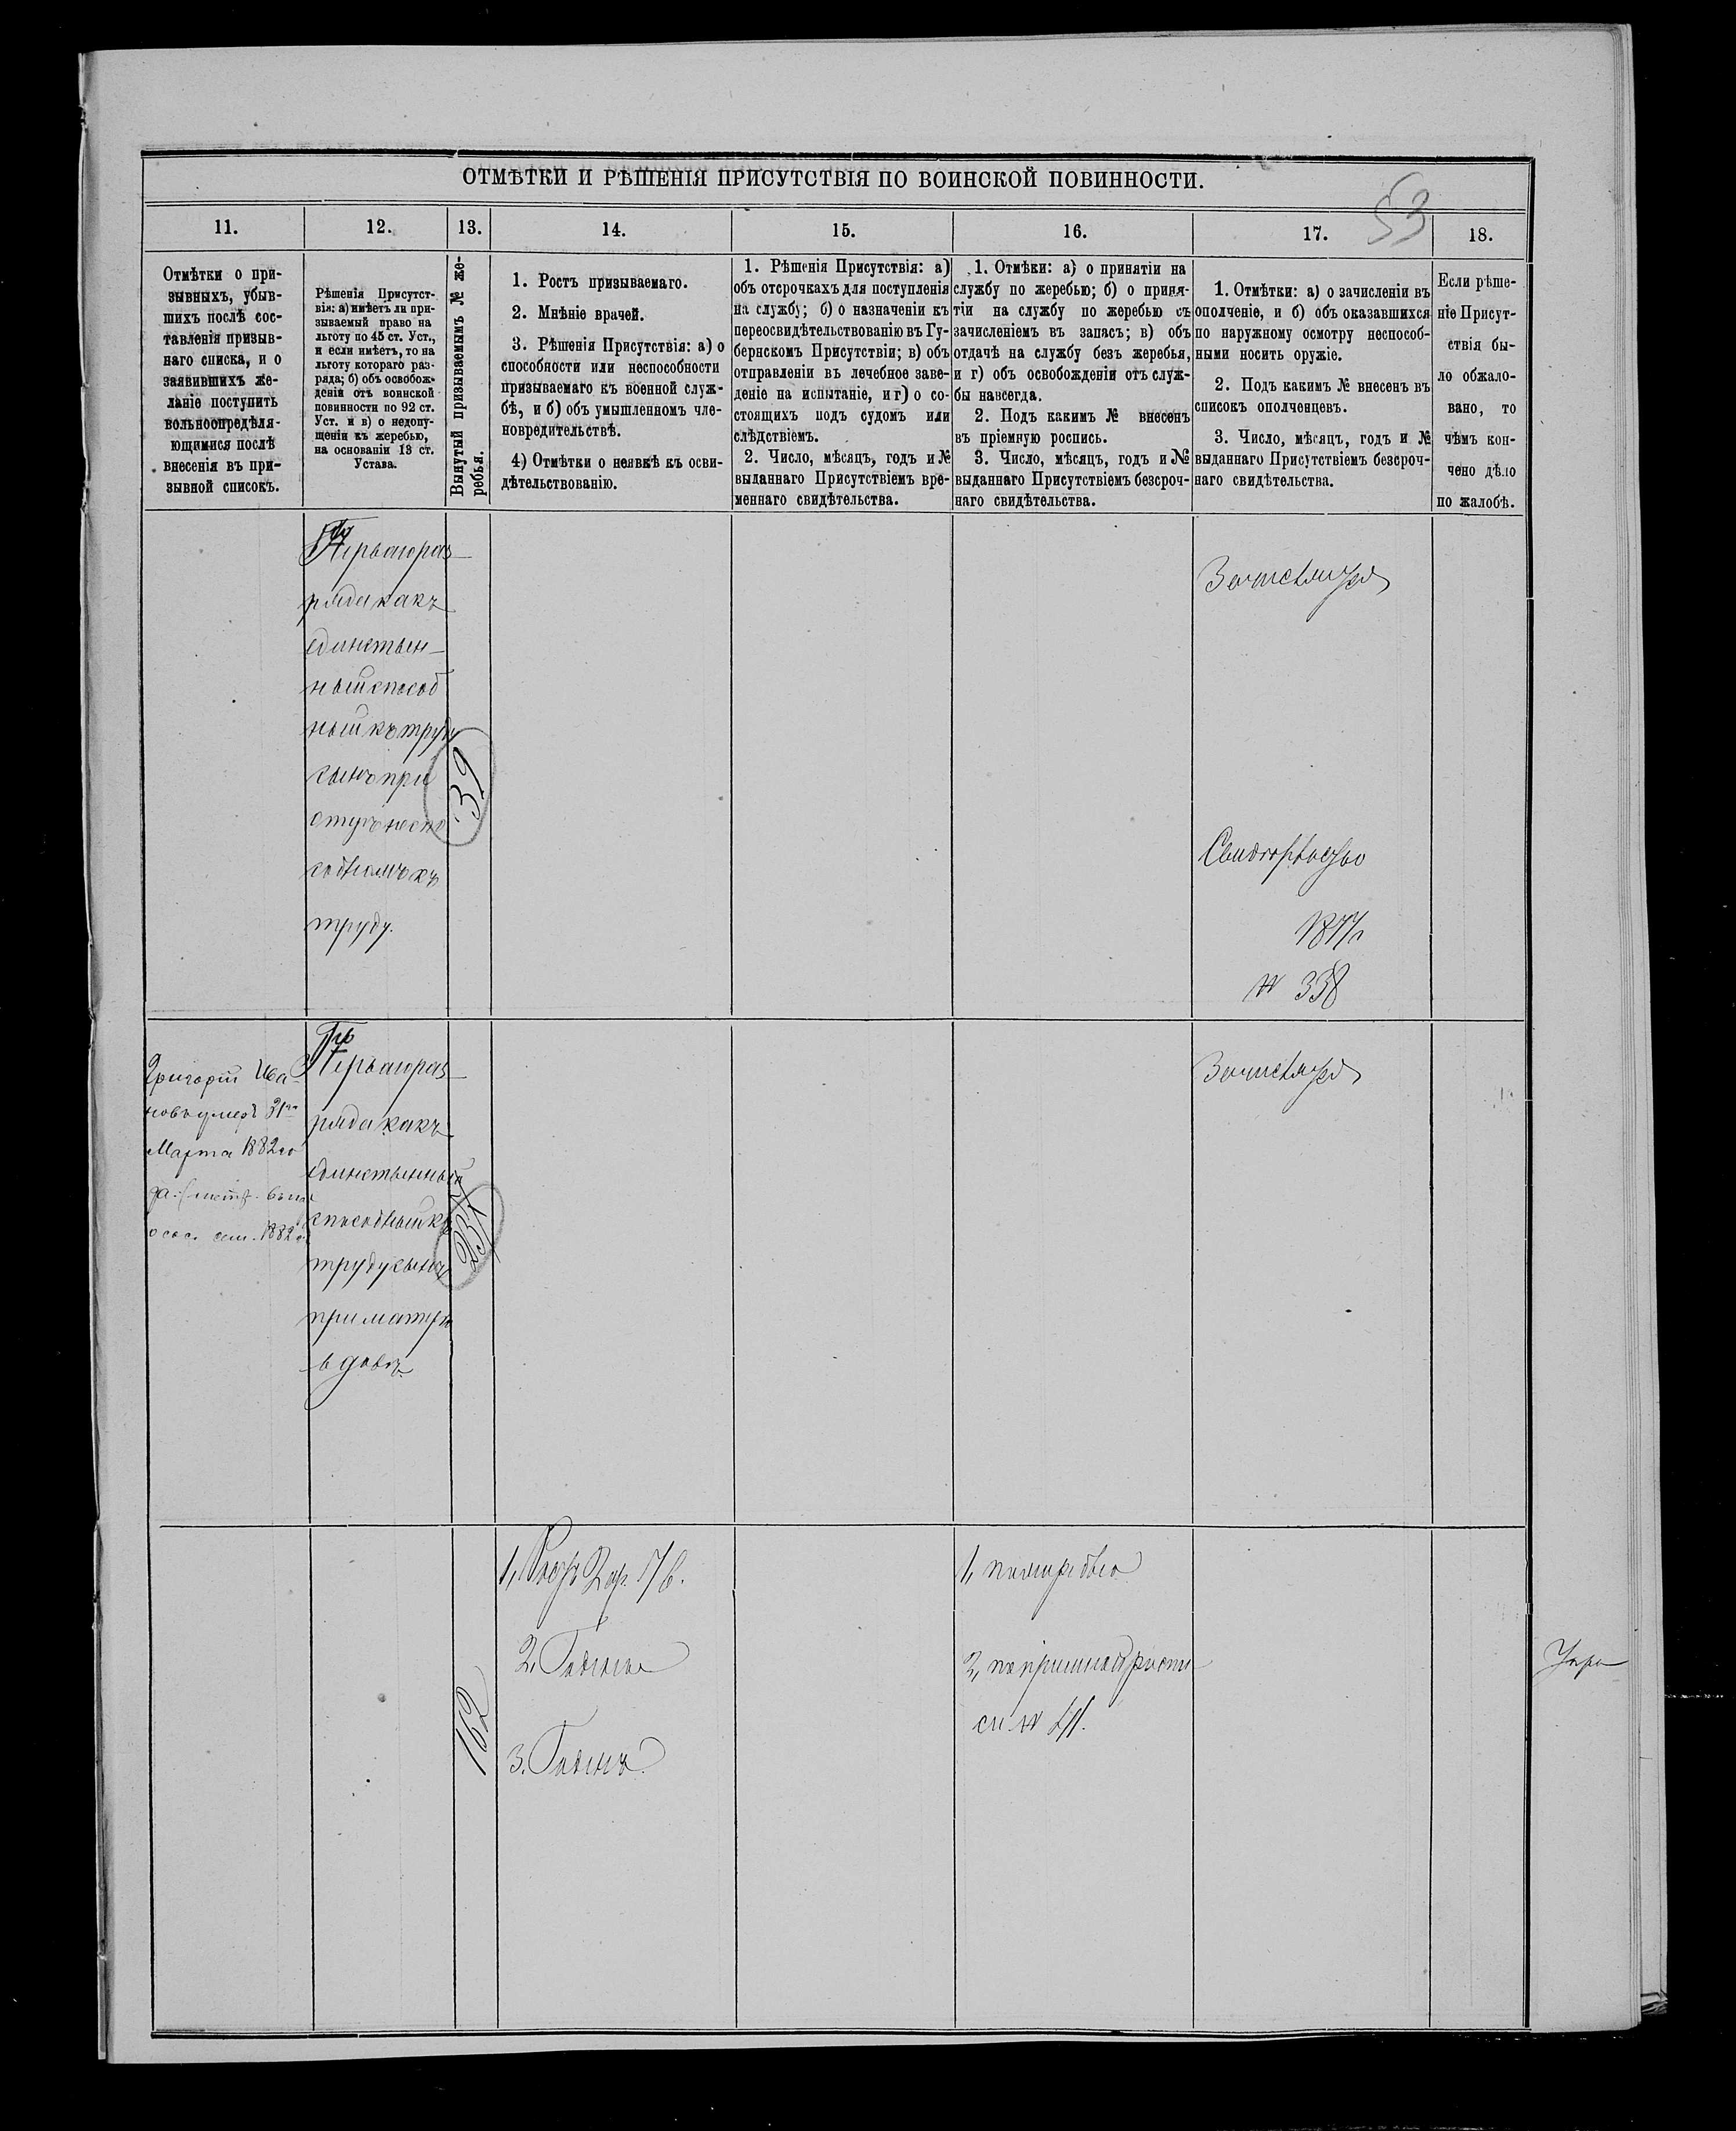 53
ОТМѢТКИ И РѢШЕНІЯ ПРИСУТСТВІЯ ПО ВОИНСКОЙ ПОВИННОСТИ.
11.
12.
13.
14.
15.
16.
17.
18.
Отмѣтки о при-
зывныхъ, убыв-
шихъ послѣ сос-
тавленія призыв-
наго списка, и о
заявившихъ же-
ланіе поступить
вольноопредѣля-
ющимися послѣ
внесенія въ при-
зывной списокъ.
Рѣшенія Присутст-
вія: а) имѣетъ ли при-
зываемый право на
льготу по 45 ст. Уст.,
и если имѣетъ, то на
льготу котораго раз-
ряда; б) объ освобож-
деніи отъ воинской
повинности по 92 ст.
Уст. и в) о недопу-
щеніи къ жеребью,
на основаніи 13 ст.
Устава.
Вынутый призываемымъ № же-
ребья.
1. Ростъ призываемаго.
2. Мнѣніе врачей.
3. Рѣшенія Присутствія: а) о
способности или неспособности
призываемаго къ военной служ-
бѣ, и б) объ умышленномъ чле-
новредительствѣ.
4) Отмѣтки о неявкѣ къ осви-
дѣтельствованію.
1. Рѣшенія Присутствія: а)
объ отсрочкахъ для поступленія
на службу; б) о назначеніи къ
переосвидѣтельствованію въ Гу-
бернскомъ Присутствіи; в) объ
отправленіи въ лечебное заве-
деніе на испытаніе, и г) о со-
стоящихъ подъ судомъ или
слѣдствіемъ.
2. Число, мѣсяцъ, годъ и №
выданнаго Присутствіемъ вре-
меннаго свидѣтельства.
1. Отмѣки: а) о принятіи на
службу по жеребью; б) о приня-
тіи на службу по жеребью съ
зачисленіемъ въ запасъ; в) объ
отдачѣ на службу безъ жеребья,
и г) объ освобожденіи отъ служ-
бы навсегда.
2. Подъ какимъ № внесенъ
въ пріемную роспись.
3. Число, мѣсяцъ, годъ и №
выданнаго Присутствіемъ безсроч-
наго свидѣтельства.
1. Отмѣтки: а) о зачисленіи въ
ополченіе, и б) объ оказавшихся
по наружному осмотру неспособ-
ными носить оружіе.
2. Подъ какимъ № внесенъ въ
списокъ ополченцевъ.
3. Число, мѣсяцъ, годъ и №
выданнаго Присутствіемъ безсроч-
наго свидѣтельства.
Если рѣше-
ніе Присут-
ствія бы-
ло обжало-
вано, то
чѣмъ кон-
чено дѣло
по жалобѣ.
Перваго раз-
ряда какъ
единствен-
ный способ
ный къ труду
сынъ при
отцѣ неспо
собномъ къ
труду.
39
Свидѣтельство
1877 г
№ 338
Григорій Ива-
новъ умеръ 31го
Марта 1882 го
да
1882
Перваго раз-
ряда какъ
единственный
способный къ
труду сынъ
при матери
вдовѣ
237
162
1, Ростъ 2 ар. 5 1/8 в.
2. Годенъ
3. Годенъ
1, по жеребью
2, по пріемной роспи-
си №